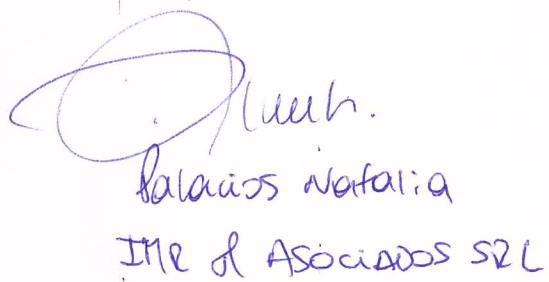 Palacios Natalia
IMR & ASOCIADOS SRL